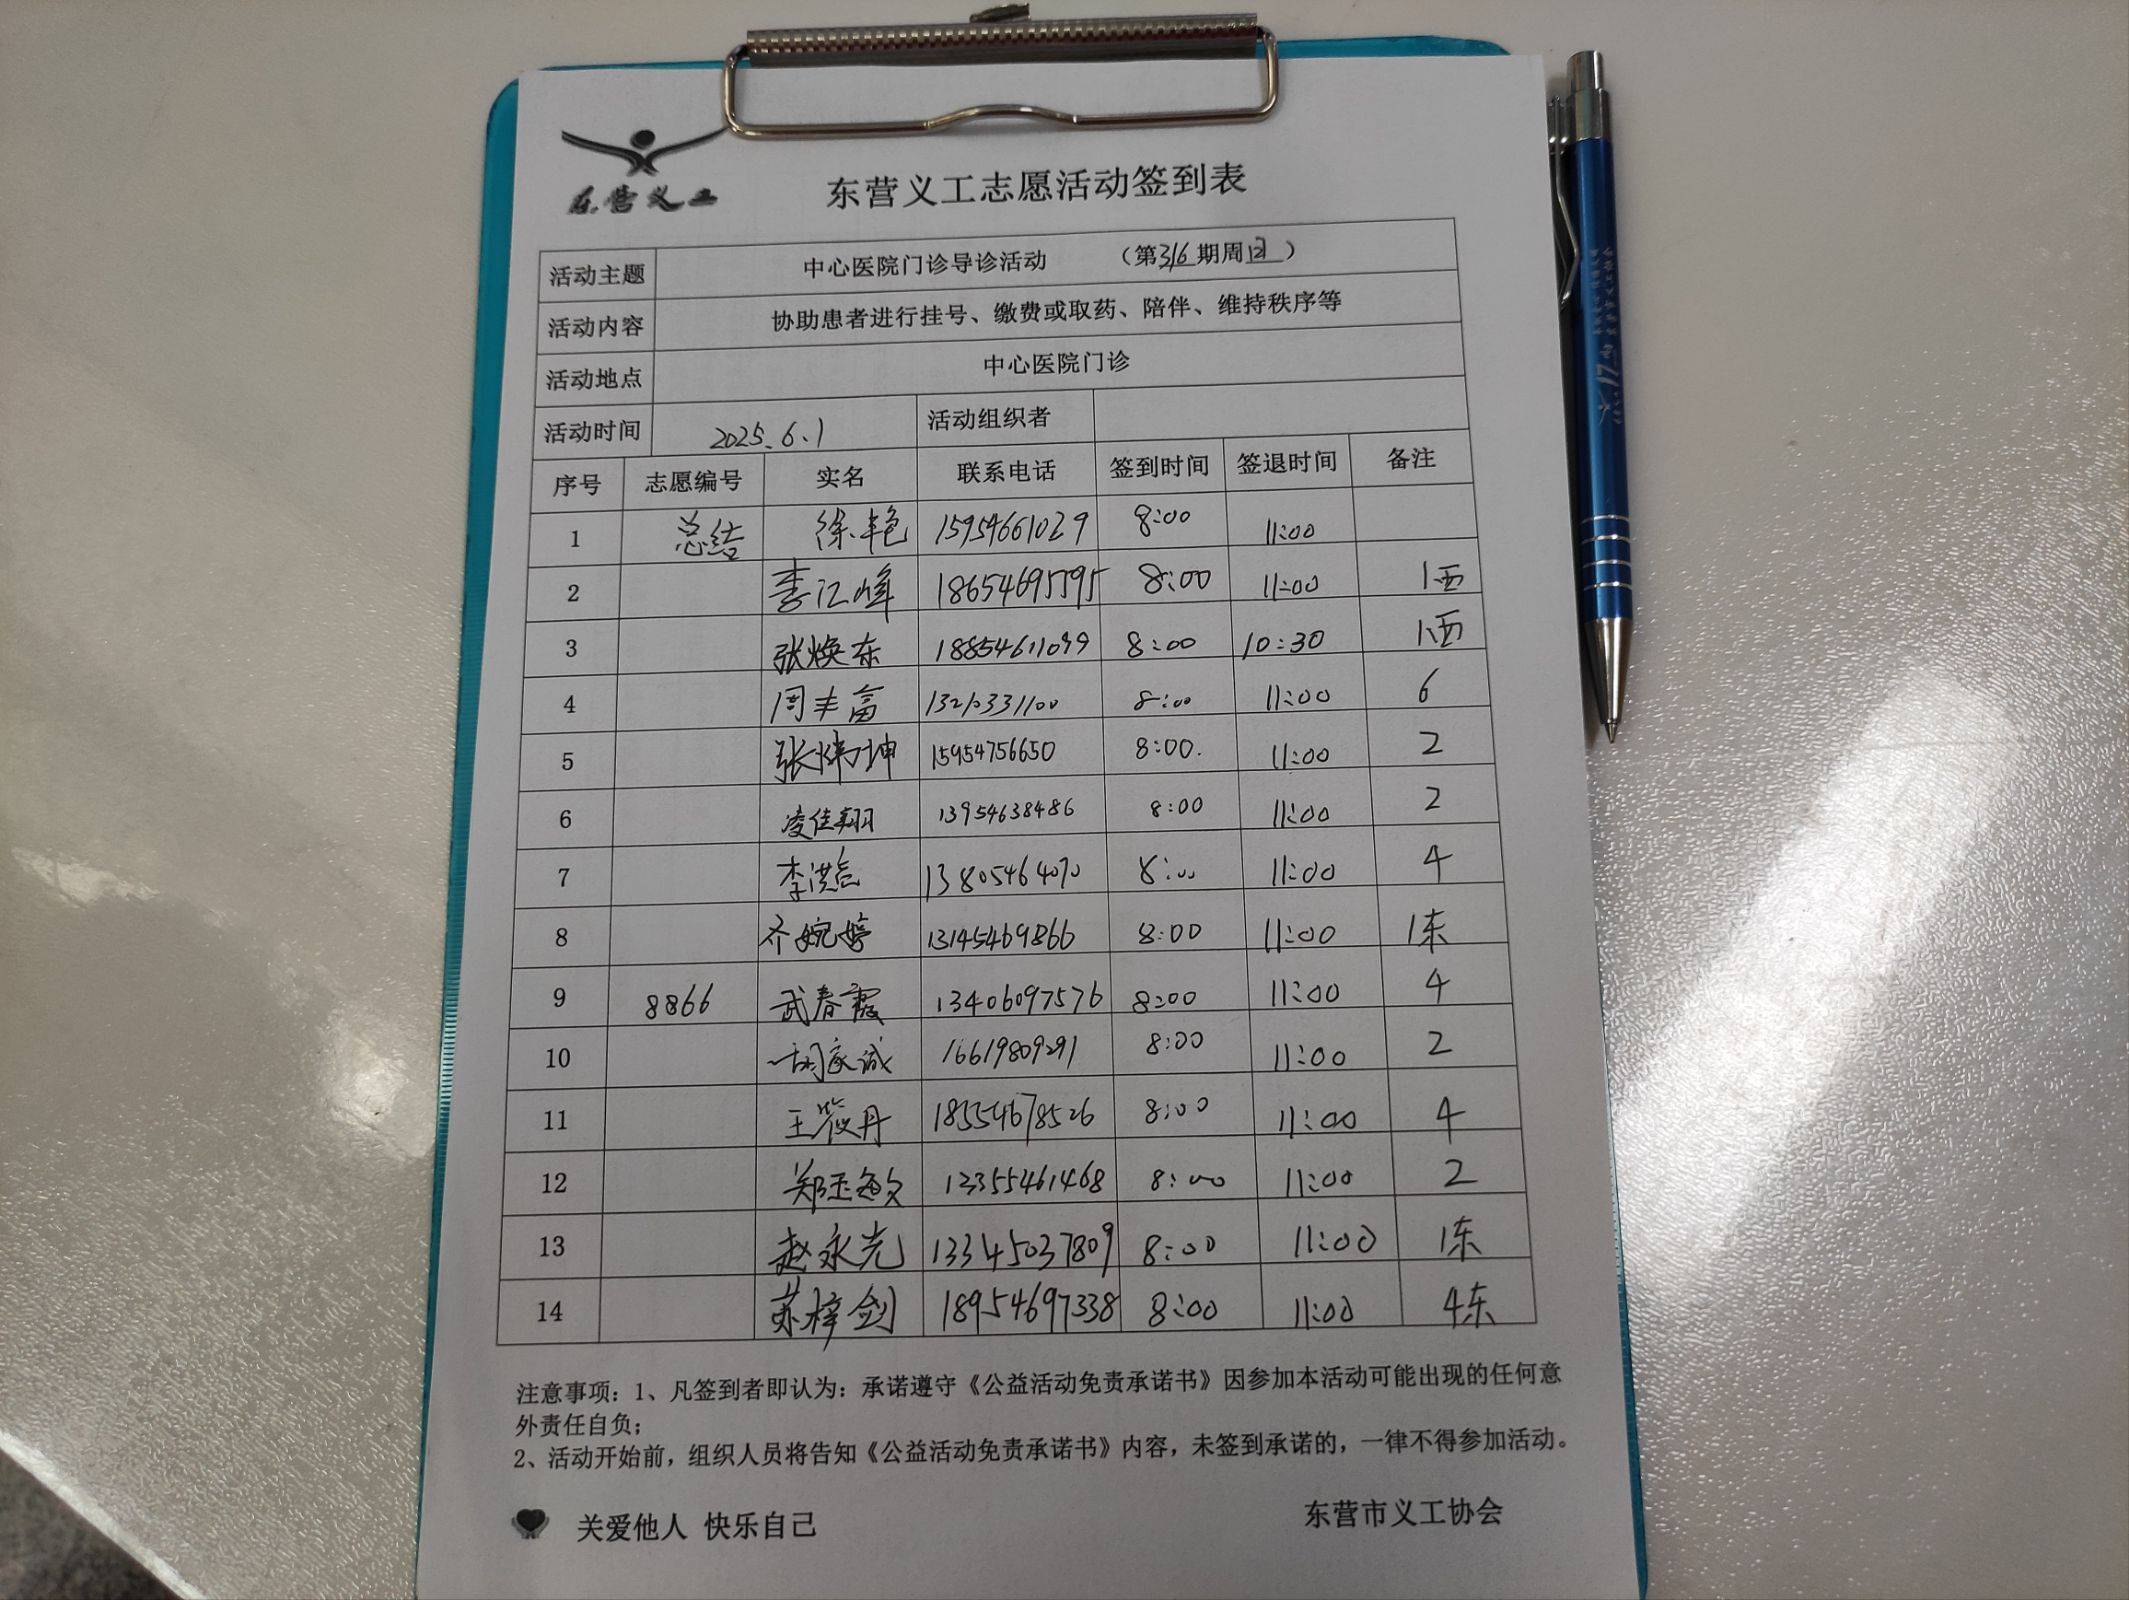 东营义工
东营义工志愿活动签到表
活动主题 中心医院门诊导诊活动 （第316期周日）
活动内容 协助患者进行挂号、缴费或取药、陪伴、维持秩序等
活动地点 中心医院门诊
活动时间 2025.6.1 活动组织者
序号 志愿编号 实名 联系电话 签到时间 签退时间 备注
1 总结 徐艳 15954661029 8:00 11:00
2 李江峰 18654695795 8:00 11:00 1西
3 张焕东 18854611099 8:00 10:30 1西
4 周丰富 13210331100 8:00 11:00 6
5 张炜坤 15954756650 8:00. 11:00 2
6 凌佳翔 13954638486 8:00 11:00 2
7 李洪 13805464070 8:00 11:00 4
8 齐婉婷 13145469866 8:00 11:00 1东
9 8866 武春霞 13406097576 8:00 11:00 4
10 胡家诚 16619809291 8:00 11:00 2
11 王筱丹 18554678526 8:00 11:00 4
12 郑玉敏 12355461468 8:00 11:00 2
13 赵永光 13345037809 8:00 11:00 1东
14 苏梓剑 18954697338 8:00 11:00 4东
注意事项：1、凡签到者即认为：承诺遵守《公益活动免责承诺书》因参加本活动可能出现的任何意
外责任自负；
2、活动开始前，组织人员将告知《公益活动免责承诺书》内容，未签到承诺的，一律不得参加活动。
关爱他人 快乐自己
东营市义工协会